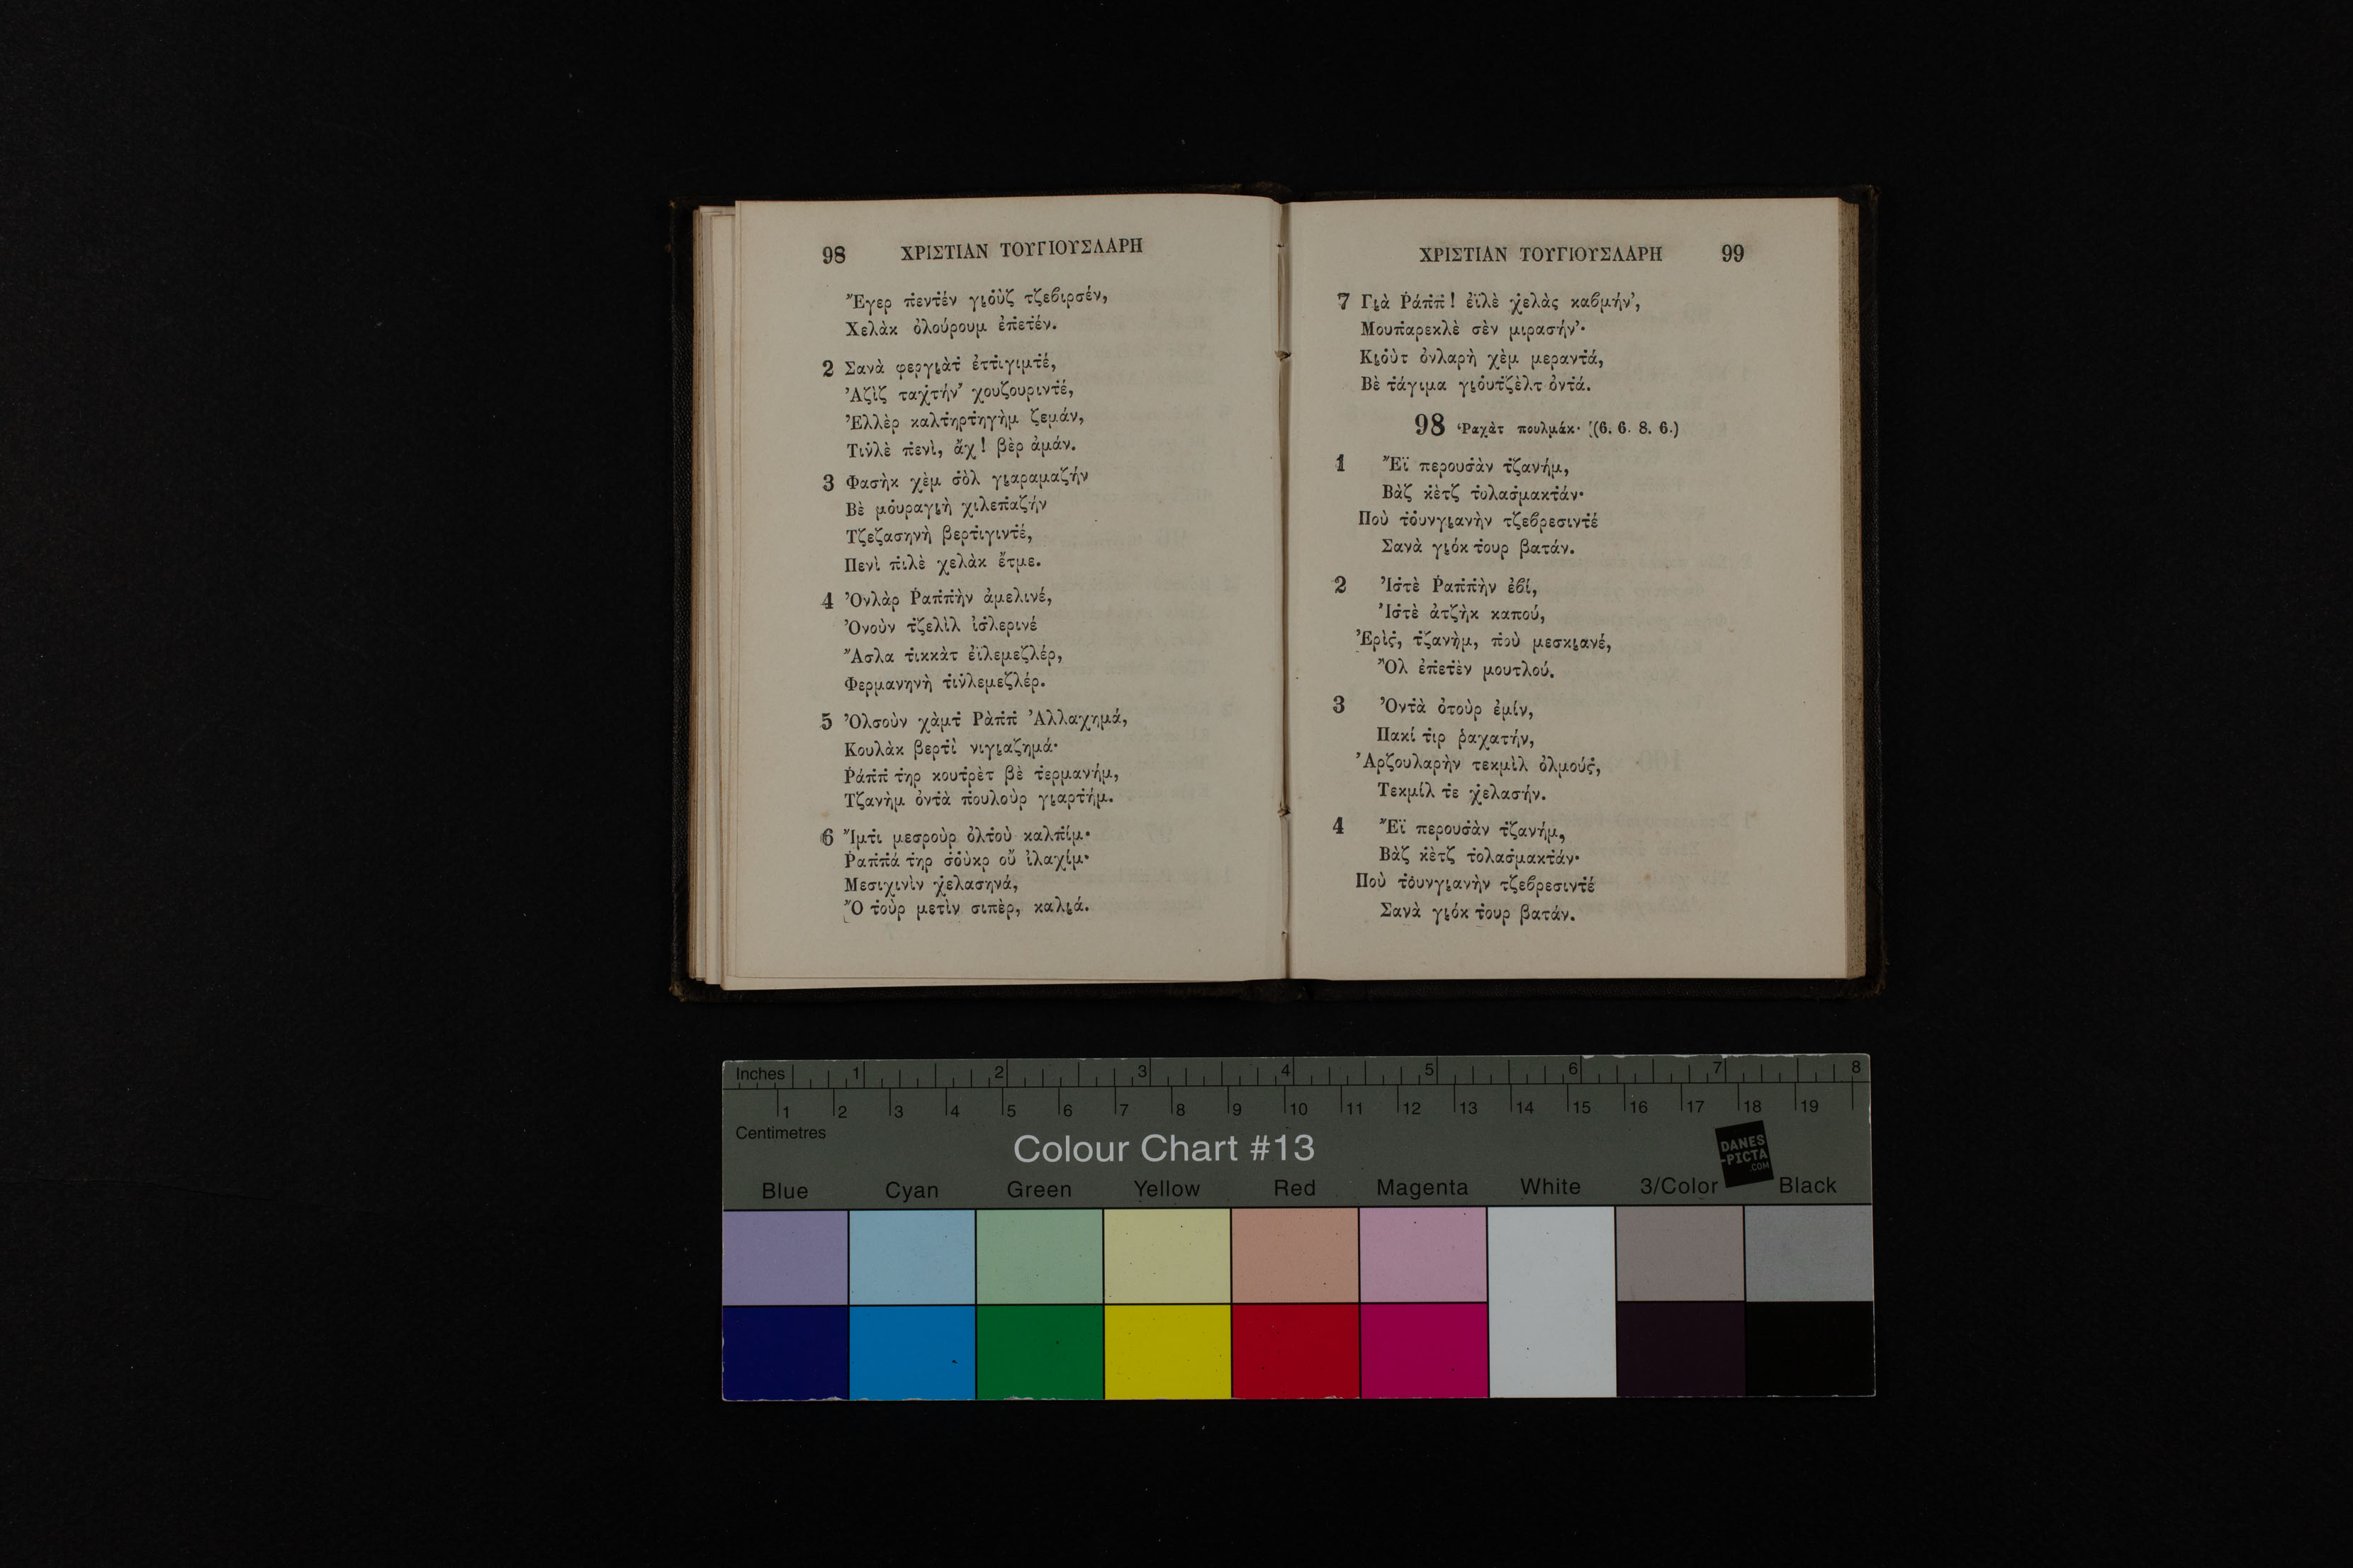 98 ΧΡΙΣΤΙΑΝ ΤΟΥΓΙΟΥΣΛΑΡΗ
Ἔγερ π̇εντ̇έν γι̖ο̇ὺζ τζεβιρσέν,
Χελὰκ ὀλούρουμ ἐπ̇ετ̇έν.
2 Σανὰ φεργι̖ὰτ̇ ἐττ̇ιγιμτ̇έ,
Ἀζὶζ ταχ̇τήν’ χουζουριντ̇έ,
Ἐλλὲρ καλτ̇ηρτ̇ηγὴμ ζεμάν,
Τιν̇λὲ π̇ενὶ, ἄχ! βὲρ ἀμάν.
3 Φασὴκ χὲμ σ̇ὸλ γι̖αραμαζήν
Βὲ μο̇υραγι̖ὴ χιλεπ̇αζήν
Τζεζασηνὴ βερτ̇ιγιντ̇έ,
Πενὶ π̇ιλὲ χελὰκ ἔτμε.
4 Ὀνλὰρ Ῥαπ̇π̇ὴν ἀμελινέ,
Ὀνοὺν τ̇ζελὶλ ἰσ̇λερινέ
Ἄσλα τ̇ικκὰτ ἐϊλεμεζλέρ,
Φερμανηνὴ τ̇ιν̇λεμεζλέρ.
5 Ὀλσοὺν χὰμτ̇ Ρὰπ̇π̇ Ἀλλαχημά,
Κουλὰκ βερτ̇ὶ νιγι̖αζημά·
Ῥάπ̇π̇ τ̇ηρ κουτ̇ρὲτ βὲ τ̇ερμανήμ,
Τζανὴμ ὀντ̇ὰ π̇ουλοὺρ γι̖αρτ̇ήμ.
6 Ἴμτ̇ι μεσροὺρ ὀλτ̇οὺ καλπ̇ίμ·
Ῥαπ̇π̇ά τ̇ηρ σ̇ο̇ὺκρ οὔ ἰλαχίμ·
Μεσιχινὶν χ̇ελασηνά,
Ὄ τ̇οὺρ μετὶν σιπὲρ, καλι̖ά.
ΧΡΙΣΤΙΑΝ ΤΟΥΓΙΟΥΣΛΑΡΗ 99
7 Γι̖ὰ Ῥάπ̇π̇! ἐϊλὲ χ̇ελὰς καβμήν’,
Μουπ̇αρεκλὲ σὲν μιρασήν’·
Κι̖ο̇ὺτ ὀνλαρὴ χὲμ μεραντ̇ά,
Βὲ τ̇άγιμα γι̖ο̇υτ̇ζὲλτ ὀντ̇ά.
98 Ῥαχὰτ πουλμάκ· (6. 6. 8. 6.)
1 Ἔϊ περουσ̇ὰν τ̇ζανήμ,
Βὰζ κ̇ὲτζ τ̇υλασ̇μακτ̇άν·
Ποὺ τ̇ο̇υνγι̖ανὴν τζεβρεσιντ̇έ
Σανὰ γι̖όκ τ̇ουρ βατάν.
2 Ἰσ̇τὲ Ῥαπ̇π̇ὴν ἐβί,
Ἰσ̇τὲ ἀτζὴκ καπού,
Ἐρὶς̇, τ̇ζανὴμ, π̇οὺ μεσκι̖ανέ,
Ὄλ ἐπ̇ετ̇ὲν μουτλού.
3 Ὀντ̇ὰ ὀτοὺρ ἐμίν,
Πακί τ̇ιρ ῥαχατήν,
Ἀρζουλαρὴν τεκμὶλ ὀλμούς̇,
Τεκμίλ τ̇ε χ̇ελασήν.
4 Ἔϊ περουσ̇ὰν τ̇ζανήμ,
Βὰζ κ̇ὲτζ τ̇ολασ̇μακτ̇άν·
Ποὺ τ̇ο̇υνγι̖ανὴν τζεβρεσιντ̇έ
Σανὰ γι̖όκ τ̇ουρ βατάν.
Inches 1 2 3 4 5 6 7 8
1 2 3 4 5 6 7 8 9 10 11 12 13 14 15 16 17 18 19
Centimetres
Colour Chart #13
DANES
-PICTA
.COM
Blue Cyan Green Yellow Red Magenta White 3/Color Black